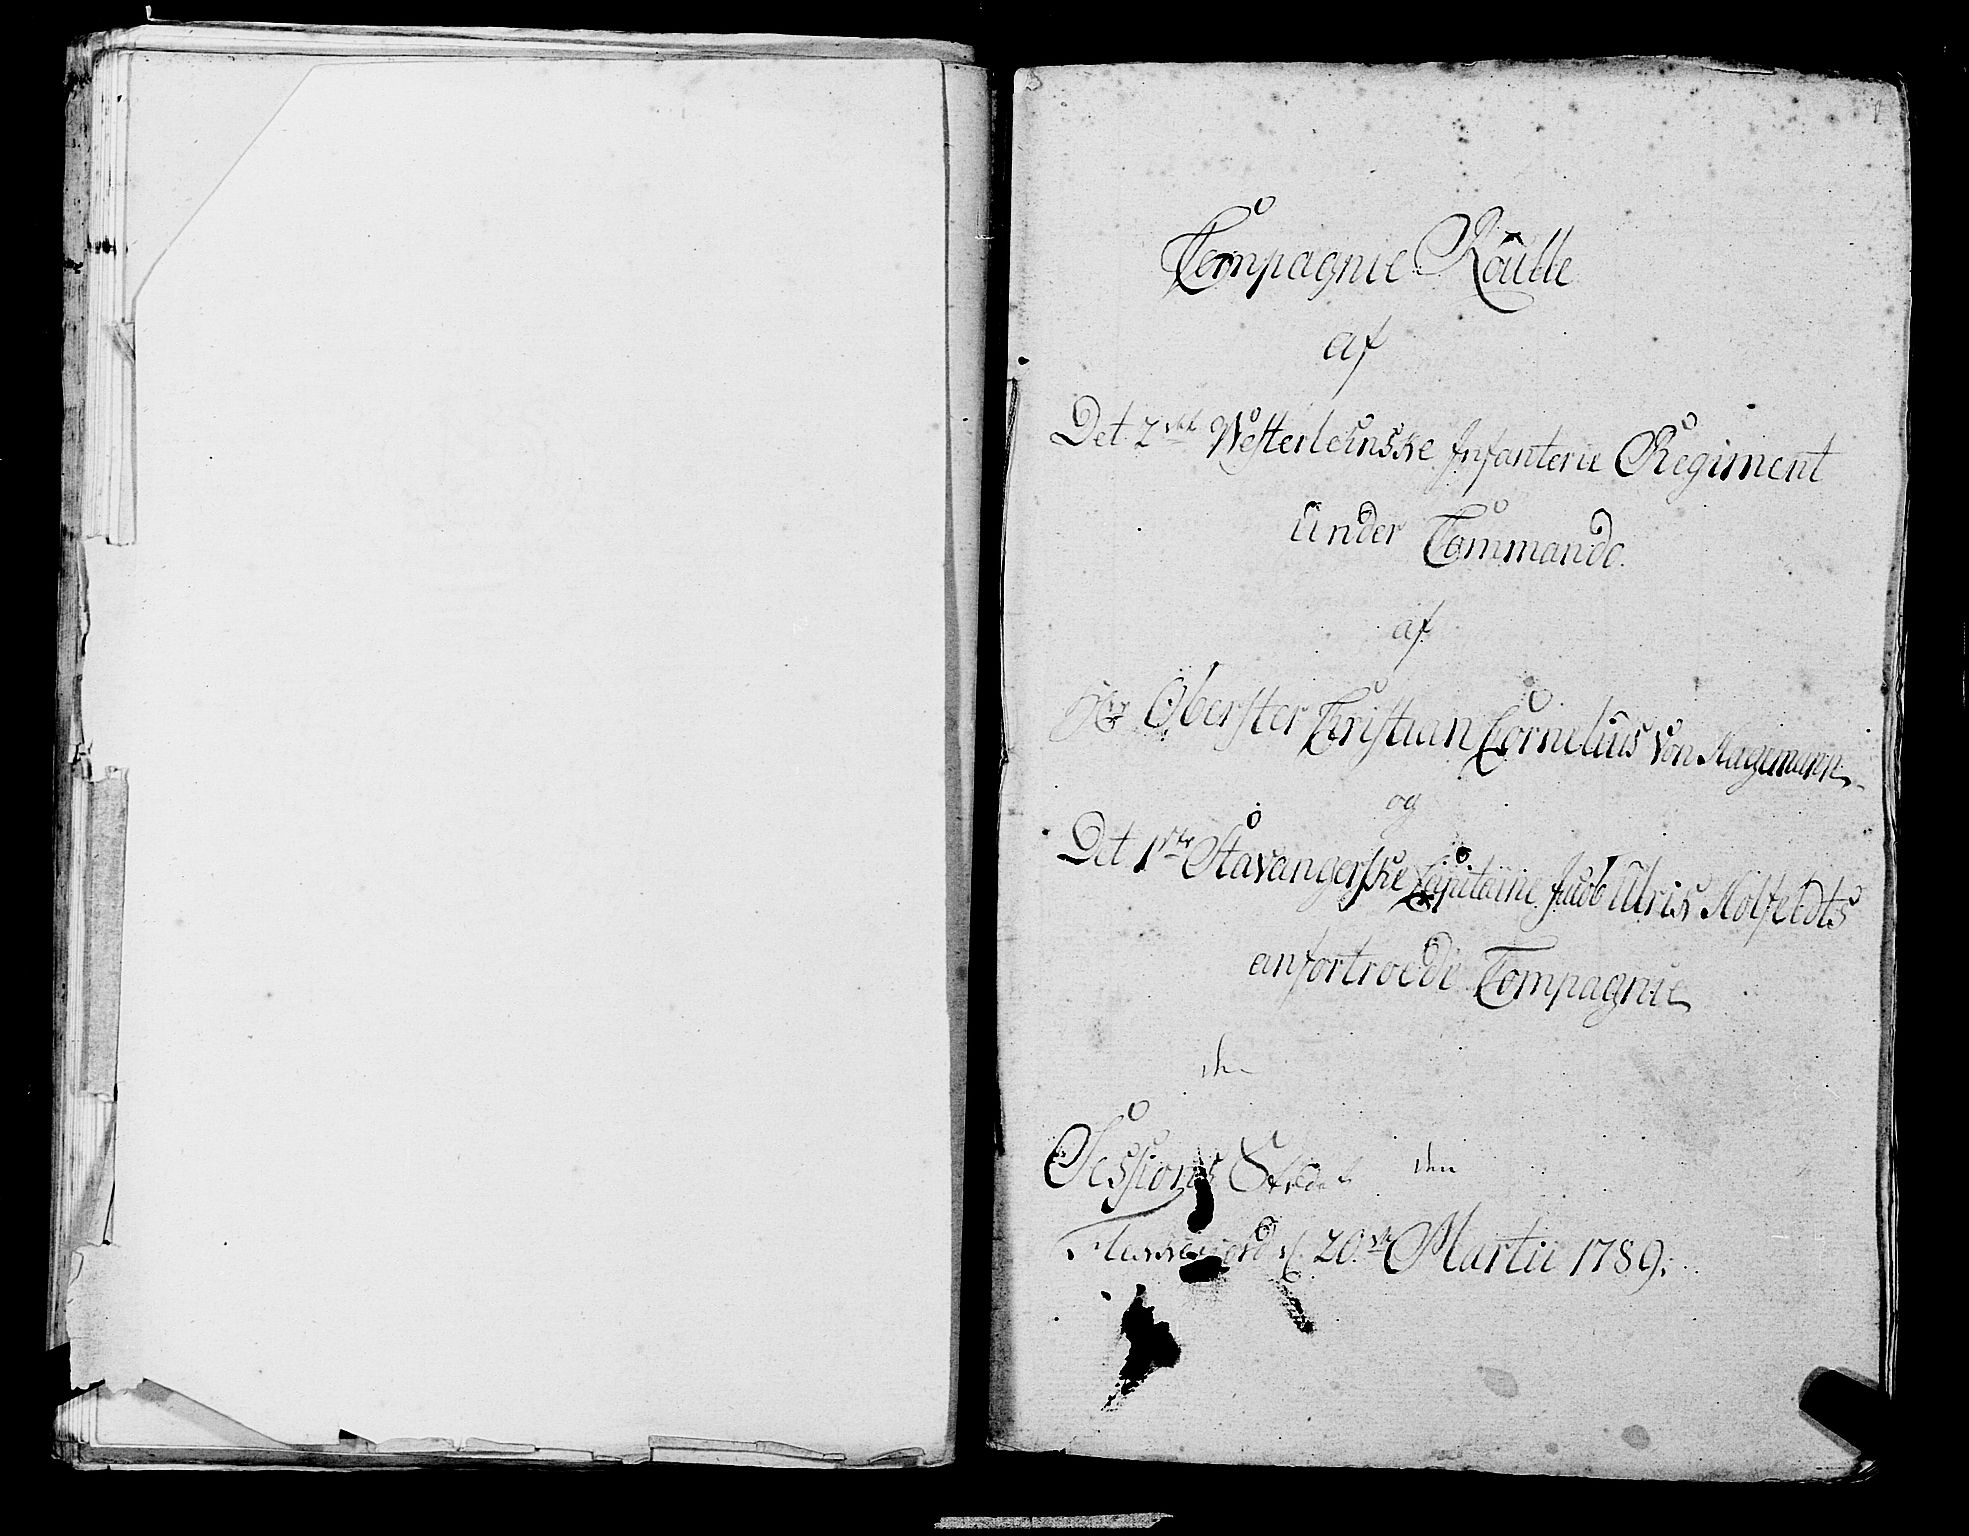 Compagnie Roulle
af
Det 2det Westerlehnske Infanterie Regiment
Under Commando.
af
Hr Oberster Christian Cornelius von Hagemann
og
Det 1ste Stavangerske Capitaine Jacob Ulrik Kolfeldts
anfortroede Compagnie
den
Sessions Stædet den
20de Martii 1789.